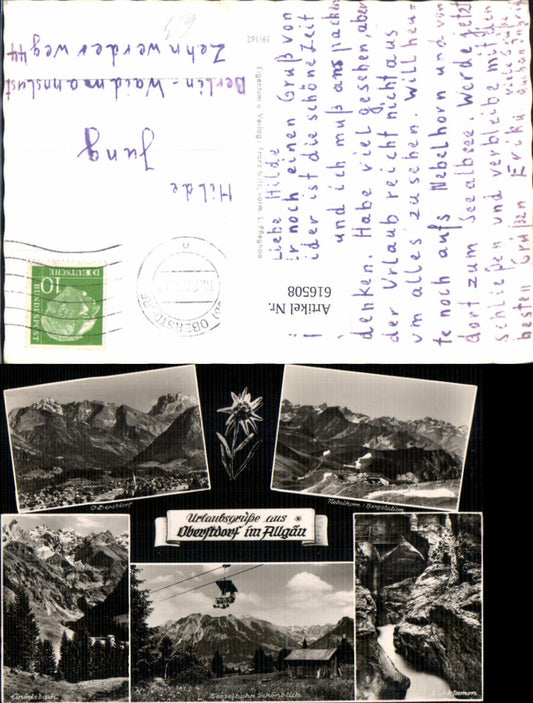 Liebe Hilde
ir noch einen Gruß von
ider ist die schöne Zeit
und ich muß ans packen
denken. Habe viel gesehen, aber
der Urlaub reicht nicht aus
um alles zu sehen. Will heu-
te noch aufs Nebelhorn und von
dort zum Seealpsee. Werde jetzt
schließen und verbleibe mit den
besten Grüßen Erika
viele Grüße
Eigentum u. Verlag:
59/162
Hilde
Jung
Berlin-Waidmannslust
Zehnwerderweg 44
OBERSTDORF
10
DEUTSCHE
BUNDESPOST
Artikel Nr.
616508
Oberstdorf
Nebelhorn-Bergstation
Urlaubsgrüße aus
Oberstdorf im Allgäu
Sesselbahn Schönblick